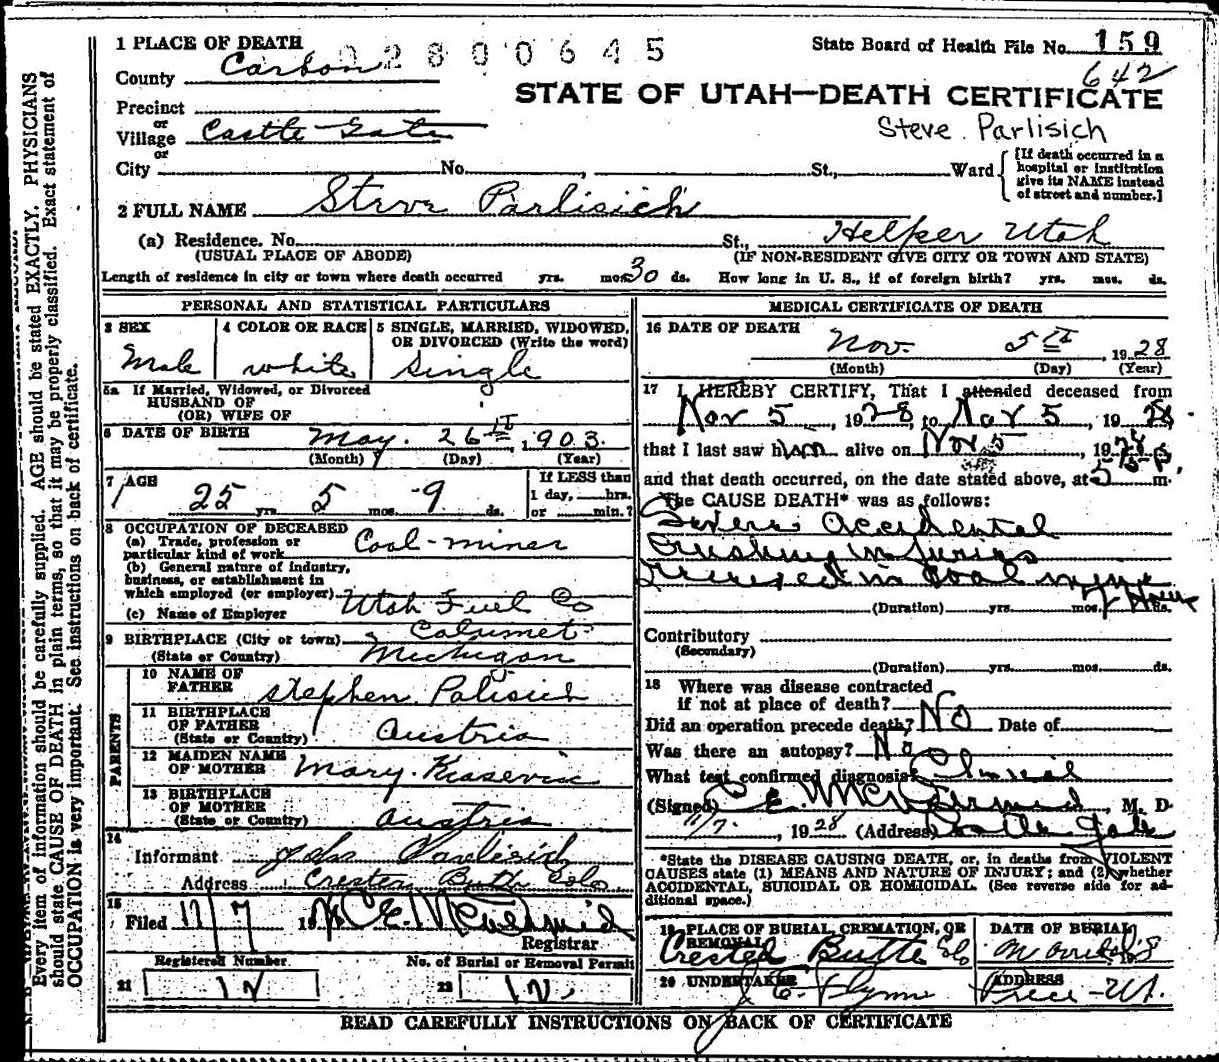 1 PLACE OF DEATH
02800645
State Board of Health File No. 159
County Carbon
642
STATE OF UTAH—DEATH CERTIFICATE
Precinct
or
Village Castle Gate
Steve Parlisich
or
City No. , St., Ward
[If death occurred in a hospital or institution give its NAME instead of street and number.]
2 FULL NAME Steve Parlisich
(a) Residence. No. St., Helper Utah
(USUAL PLACE OF ABODE) (IF NON-RESIDENT GIVE CITY OR TOWN AND STATE)
Length of residence in city or town where death occurred yrs. mos. 30 ds. How long in U. S., if of foreign birth? yrs. mos. ds.
PERSONAL AND STATISTICAL PARTICULARS
3 SEX
Male
4 COLOR OR RACE
white
5 SINGLE, MARRIED, WIDOWED,
OR DIVORCED (Write the word)
single
5a If Married, Widowed, or Divorced
HUSBAND OF
(OR) WIFE OF
6 DATE OF BIRTH May 26th, 1903
(Month) (Day) (Year)
7 AGE
25 yrs 5 mos. 9 ds.
If LESS than
1 day, hrs.
or min.?
8 OCCUPATION OF DECEASED
(a) Trade, profession or
particular kind of work Coal-miner
(b) General nature of industry,
business, or establishment in
which employed (or employer)
(c) Name of Employer Utah Fuel Co
9 BIRTHPLACE (City or town) Calumet
(State or Country) Michigan
PARENTS
10 NAME OF
FATHER Stephen Palisich
11 BIRTHPLACE
OF FATHER
(State or Country) Austria
12 MAIDEN NAME
OF MOTHER Mary
13 BIRTHPLACE
OF MOTHER
(State or Country) Austria
14
Informant John Parlisich
Address Crested Butte Colo
15
Filed 11/7 19 C. E. McDermid
Registrar
Registered Number.
21 12
No. of Burial or Removal Permit
22 12
MEDICAL CERTIFICATE OF DEATH
16 DATE OF DEATH
Nov. 5th, 1928
(Month) (Day) (Year)
17 I HEREBY CERTIFY, That I attended deceased from
Nov 5, 1928 to Nov 5, 1928
that I last saw him alive on Nov 5, 1928
and that death occurred, on the date stated above, at 5 15 P. m.
The CAUSE DEATH* was as follows:
Severe Accidental
Crushing injuries
Received in Coal mine
(Duration) yrs. mos. ds.
Contributory
(Secondary)
(Duration) yrs. mos. ds.
18 Where was disease contracted
if not at place of death?
Did an operation precede death? No Date of
Was there an autopsy? No
What test confirmed diagnosis? Clinical
(Signed) C. E. McDermid, M. D.
11/7, 1928 (Address) Castle Gate
*State the DISEASE CAUSING DEATH, or, in deaths from VIOLENT
CAUSES state (1) MEANS AND NATURE OF INJURY; and (2) whether
ACCIDENTAL, SUICIDAL OR HOMICIDAL. (See reverse side for ad-
ditional space.)
19 PLACE OF BURIAL, CREMATION, OR
REMOVAL
Crested Butte Colo
DATE OF BURIAL
20 UNDERTAKER
J. E. Flynn
ADDRESS
Price - Ut.
READ CAREFULLY INSTRUCTIONS ON BACK OF CERTIFICATE
Every item of information should be carefully supplied. AGE should be stated EXACTLY. PHYSICIANS
should state CAUSE OF DEATH in plain terms, so that it may be properly classified. Exact statement of
OCCUPATION is very important. See instructions on back of certificate.